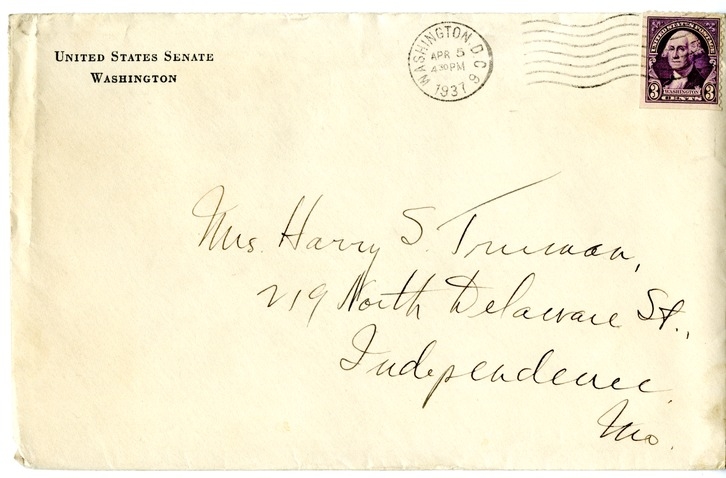 UNITED STATES SENATE
WASHINGTON
WASHINGTON, D.C. 9
APR 5
4 30 PM
1937
UNITED STATES POSTAGE
3 3
WASHINGTON
CENTS
Mrs. Harry S. Truman,
219 North Delaware St.,
Independence
Mo.